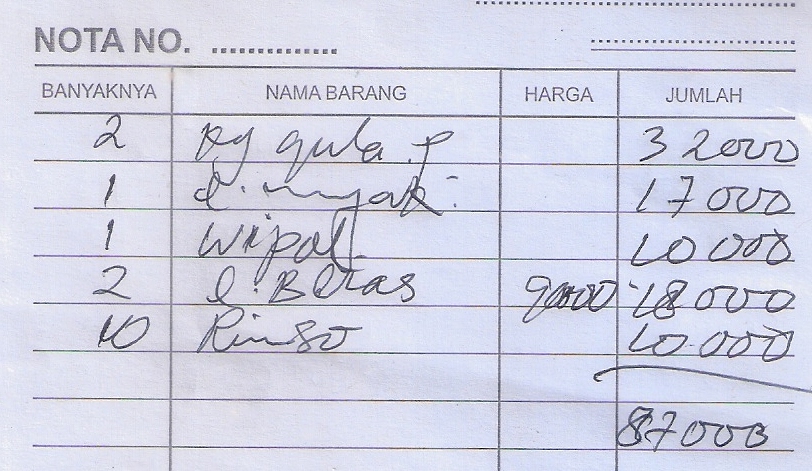 NOTA NO. ..............
BANYAKNYA NAMA BARANG HARGA JUMLAH
2 kg gula p 32000
1 l. minyak 17000
1 Wipol 10000
2 l. Beras 9000 18000
10 Rinso 10.000
87000